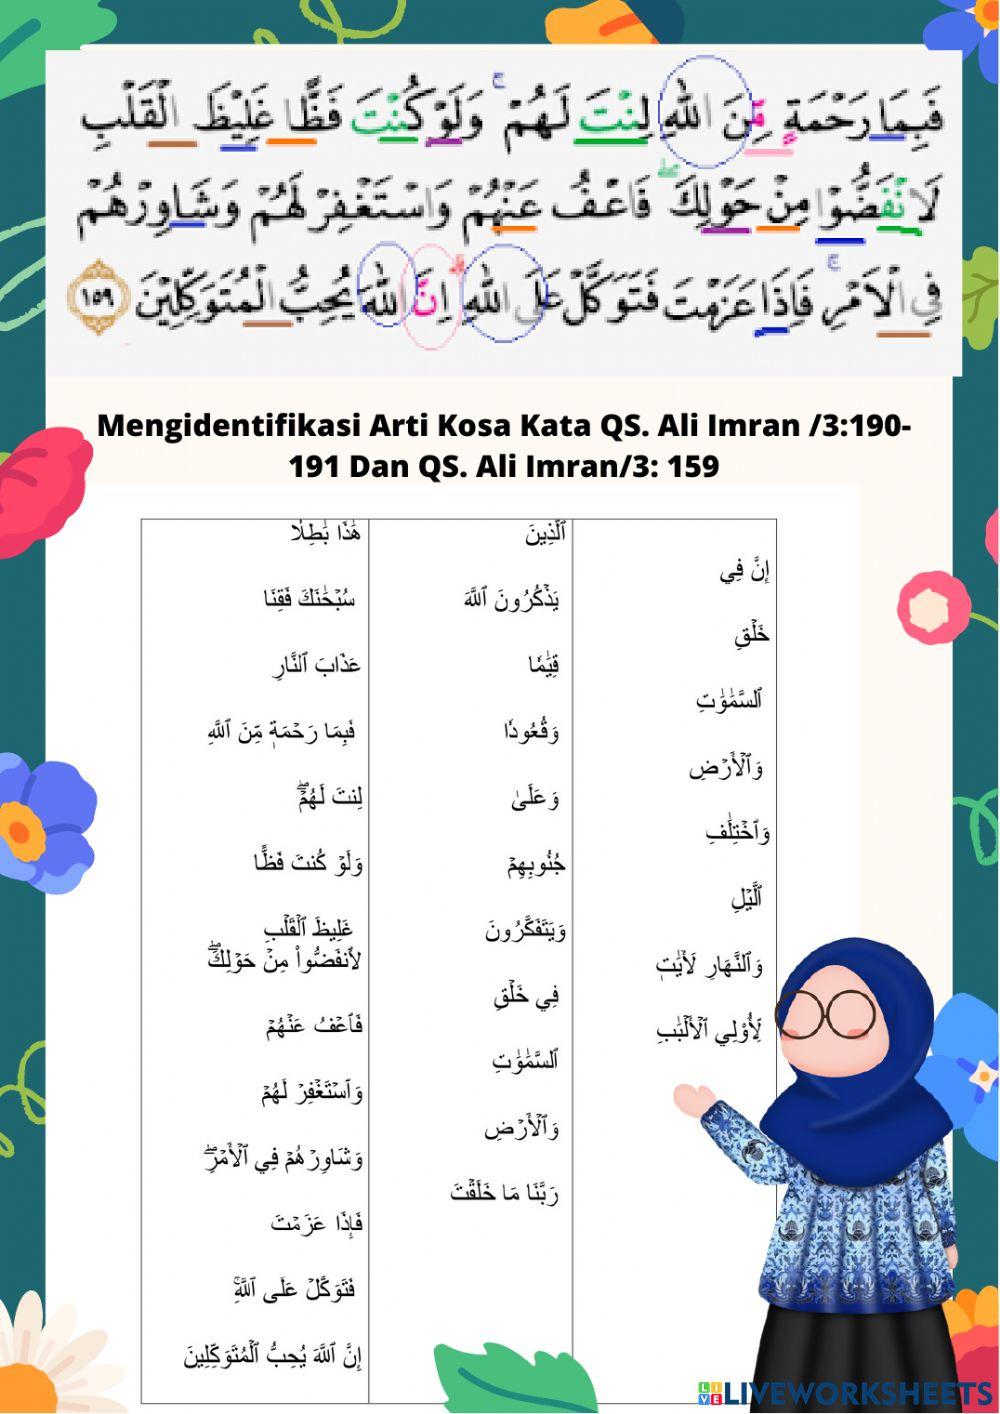 فَبِمَا رَحْمَةٍ مِّنَ اللّٰهِ لِنْتَ لَهُمْ ۚ وَلَوْ كُنْتَ فَظًّا غَلِيْظَ الْقَلْبِ
لَانْفَضُّوْا مِنْ حَوْلِكَ ۖ فَاعْفُ عَنْهُمْ وَاسْتَغْفِرْ لَهُمْ وَشَاوِرْهُمْ
فِى الْاَمْرِ ۚ فَاِذَا عَزَمْتَ فَتَوَكَّلْ عَلَى اللّٰهِ ۗ اِنَّ اللّٰهَ يُحِبُّ الْمُتَوَكِّلِيْنَ ١٥٩
Mengidentifikasi Arti Kosa Kata QS. Ali Imran /3:190-
191 Dan QS. Ali Imran/3: 159
إِنَّ فِي
خَلْقِ
ٱلسَّمَٰوَٰتِ
وَٱلْأَرْضِ
وَٱخْتِلَٰفِ
ٱلَّيْلِ
وَٱلنَّهَارِ لَأٓيَٰتٖ
لِّأُوْلِي ٱلْأَلْبَٰبِ
ٱلَّذِينَ
يَذْكُرُونَ ٱللَّهَ
قِيَٰمٗا
وَقُعُودٗا
وَعَلَىٰ
جُنُوبِهِمْ
وَيَتَفَكَّرُونَ
فِي خَلْقِ
ٱلسَّمَٰوَٰتِ
وَٱلْأَرْضِ
رَبَّنَا مَا خَلَقْتَ
هَٰذَا بَٰطِلٗا
سُبْحَٰنَكَ فَقِنَا
عَذَابَ ٱلنَّارِ
فَبِمَا رَحْمَةٖ مِّنَ ٱللَّهِ
لِنتَ لَهُمْۖ
وَلَوْ كُنتَ فَظًّا
غَلِيظَ ٱلْقَلْبِ
لَٱنفَضُّواْ مِنْ حَوْلِكَۖ
فَٱعْفُ عَنْهُمْ
وَٱسْتَغْفِرْ لَهُمْ
وَشَاوِرْهُمْ فِي ٱلْأَمْرِۖ
فَإِذَا عَزَمْتَ
فَتَوَكَّلْ عَلَى ٱللَّهِۚ
إِنَّ ٱللَّهَ يُحِبُّ ٱلْمُتَوَكِّلِينَ
LIVE LIVEWORKSHEETS